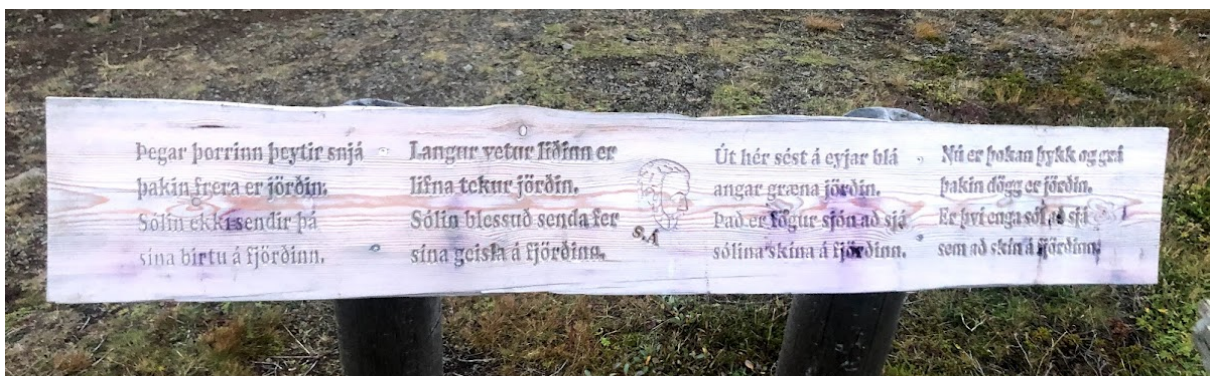 Þegar þorrinn þeytir snjá
þakin frera er jörðin.
Sólin ekki sendir þá
sína birtu á fjörðinn.
Langur vetur liðinn er
lifna tekur jörðin.
Sólin blessuð senda fer
sína geisla á fjörðinn.
S.A
Út hér sést á eyjar blá
angar græna jörðin.
Það er fögur sjón að sjá
sólina skína á fjörðinn.
Nú er þokan þykk og grá
þakin dögg er jörðin.
Er því enga sól að sjá
sem að skín á fjörðinn.